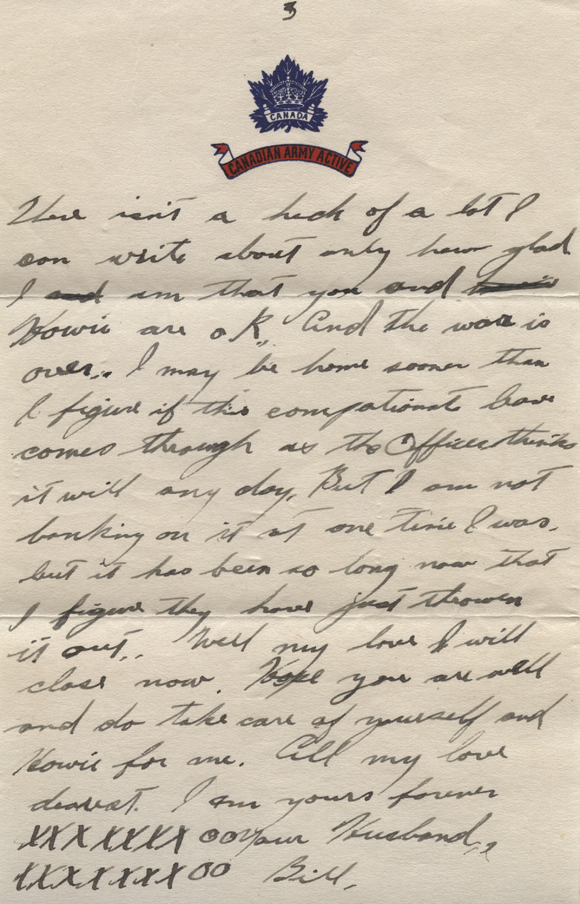 3
CANADA
CANADIAN ARMY ACTIVE
There isn't a heck of a lot I
can write about only how glad
I and am that you and
Howie are o K. And the war is
over.. I may be home sooner than
I figure if this compationate leave
comes through as the Officer thinks
it will any day, But I am not
banking on it at one time I was,
but it has been so long now that
I figure they have just thrown
it out.. Well my love I will
close now. Hope you are well
and do take care of yourself and
Howie for me. All my love
dearest. I am yours forever
XXXXXXXX OO Your Husband,
XXXXXXXX OO Bill,